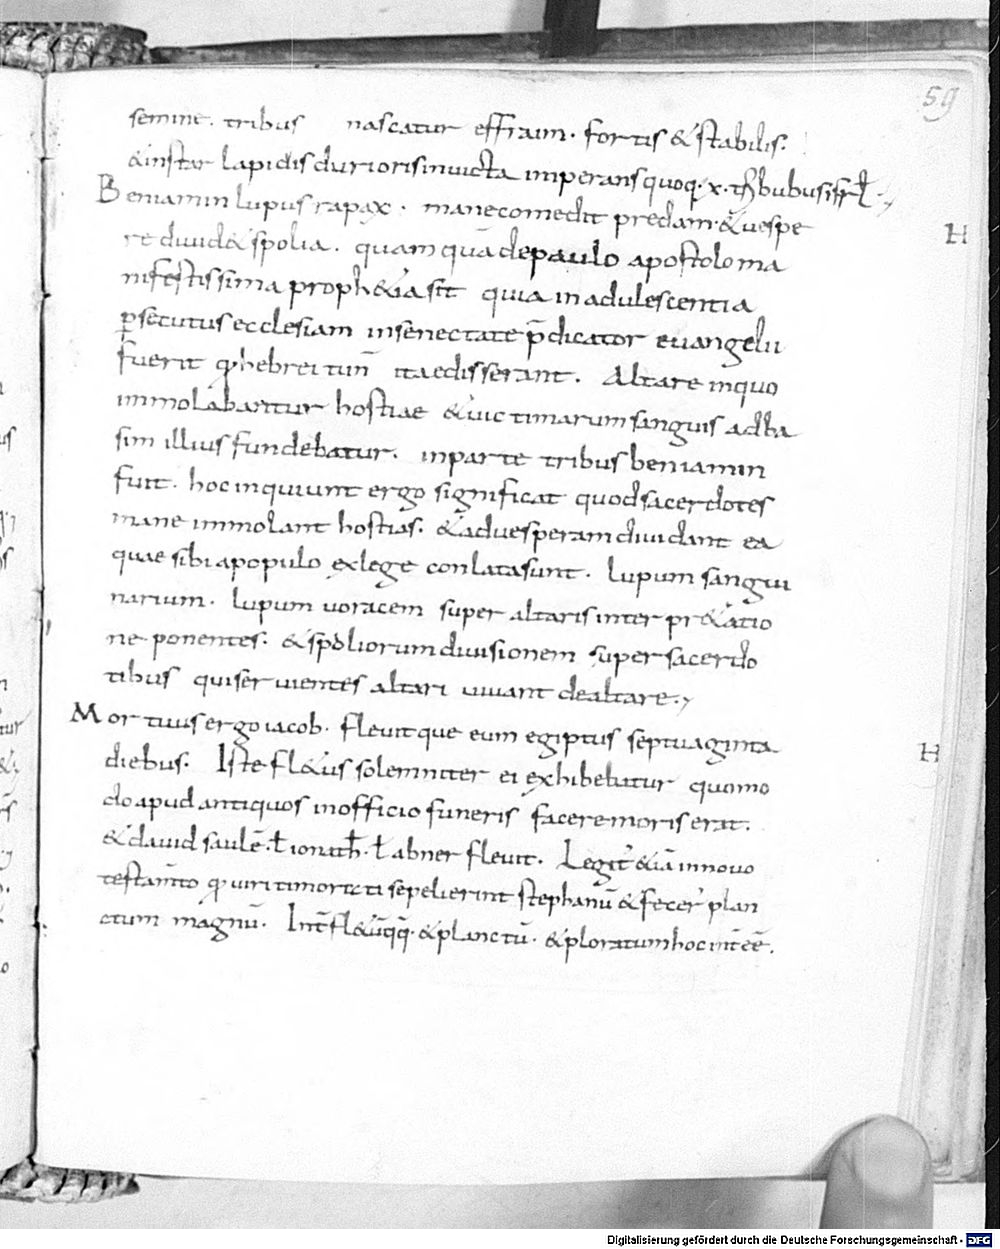 59
semine. tribus nascatur effraim. fortis & stabilis:
& instar lapidis durioris inuicta imperans quoq. x. tribubus isrl.
Beniamin lupus rapax. mane comedit predam. & uespe
re diuid& spolia. quam quā de paulo apostolo ma
nifestissima proph&ia sit quia in adulescentia
ꝑsecutus ecclesiam in senectate p̄dicator euangelii
fuerit hebrei tūn ita edisserant. Altare in quo
immolabantur hostiae & uictimarum sanguis ad ba
sim illius fundebatur. in parte tribus beniamin
fuit. hoc inquiunt ergo significat quod sacerdotes
mane immolant hostias. & ad uesperam diuidant ea
quae sibi a populo ex lege conlata sunt. lupum sangui
narium. lupum uoracem super altaris interpr&atio
ne ponentes. & spoliorum diuisionem super sacerdo
tibus qui seruientes altari uiuant de altare.
H
Mortuus ergo iacob. fleuitque eum egiptus septuaginta
diebus. Iste fl&us solemniter ei exhibebatur quomo
do apud antiquos in officio funeris facere moris erat.
H
& dauid saulē. ł ionath. ł abner fleuit. Legit &iā in nouo
testamto uiri timorati sepelierint stephanū & fecer plan
ctum magnū. Int fl&ū q̄q. & planctū. & ploratum hoc int eē.
Digitalisierung gefördert durch die Deutsche Forschungsgemeinschaft - DFG